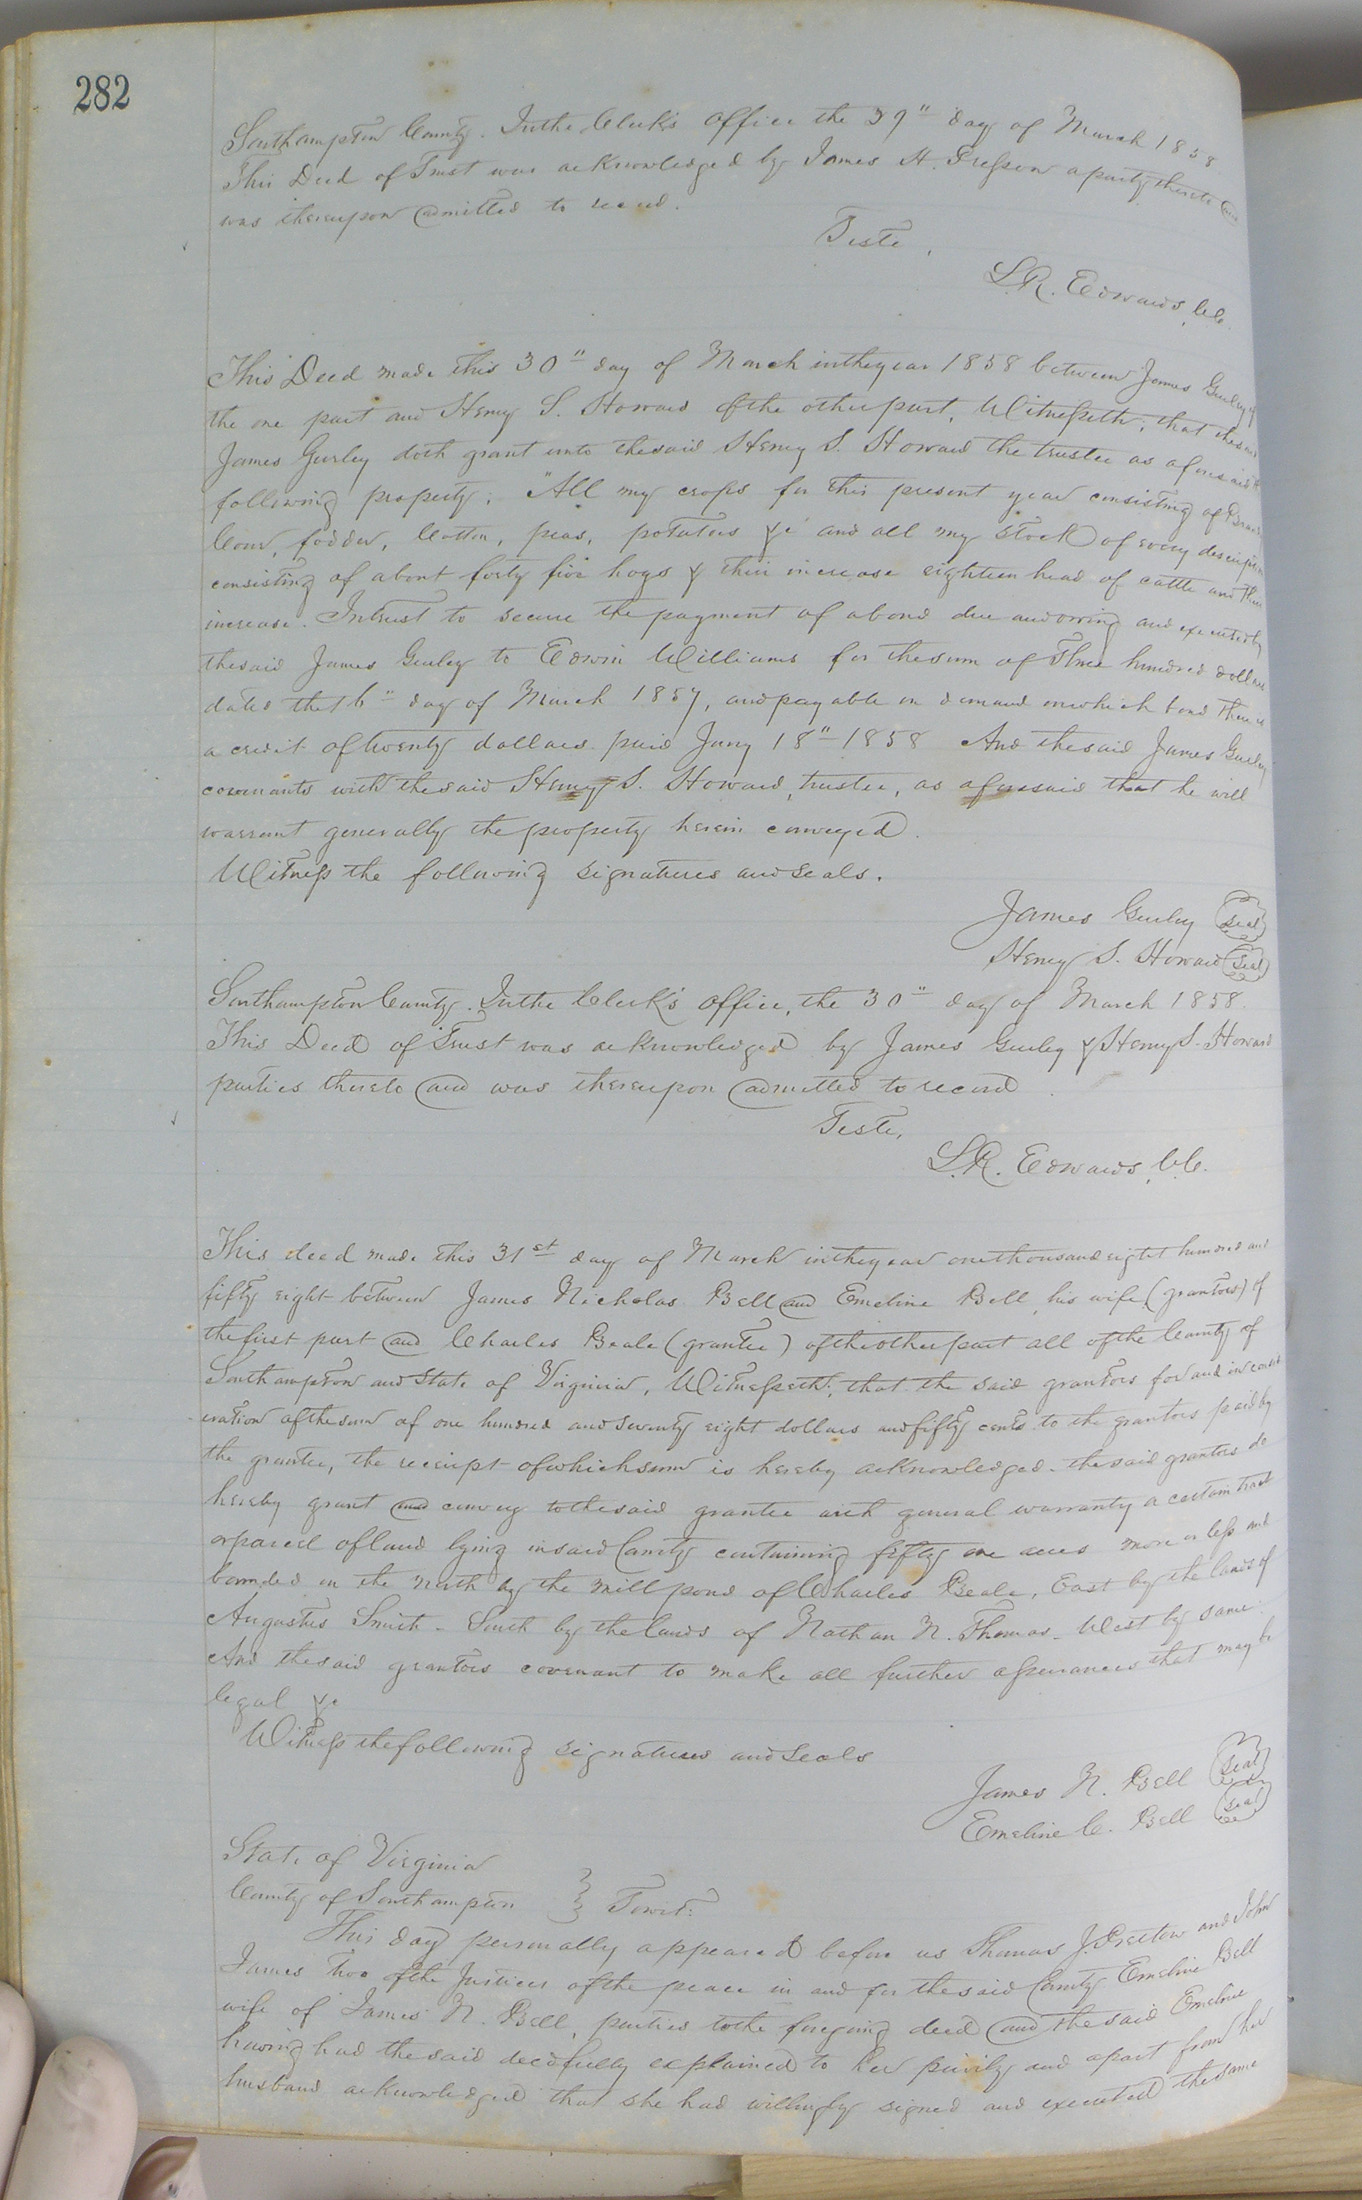 282
Southampton County. In the Clerk's office the 29" day of March 1858
This Deed of Trust was acknowledged by James H. Presson a party thereto and
was thereupon admitted to record.
Teste,
L.R. Edwards, C.C.
This Deed made this 30" day of March in the year 1858 between James Gurley of
the one part and Henry S. Howard of the other part, Witnesseth; that the said
James Gurley doth grant unto the said Henry S. Howard the trustee as aforesaid the
following property; "All my crops for this present year consisting of
Corn, fodder, Cotton, peas, potatoes &c and all my stock of every description
consisting of about forty five hogs & their increase eighteen head of cattle and their
increase. In trust to secure the payment of a bond due and owing and executed by
the said James Gurley to Edwin Williams for the sum of Three hundred dollars
dated the 16" day of March 1857, and payable on demand on which bond there is
a credit of twenty dollars paid Jany 18" 1858 And the said James Gurley
covenants with the said Henry S. Howard, trustee, as aforesaid that he will
warrant generally the property herein conveyed.
Witness the following signatures and seals.
James Gurley (seal)
Henry S. Howard (seal)
Southampton County. In the Clerk's office, the 30" day of March 1858.
This Deed of Trust was acknowledged by James Gurley & Henry S. Howard
parties thereto and was thereupon admitted to record.
Teste,
L.R. Edwards, C.C.
This deed made this 31st day of March in the year one thousand eight hundred and
fifty eight between James Nicholas Bell and Emeline Bell, his wife (grantors) of
the first part and Charles Beale (grantee) of the other part all of the County of
Southampton and State of Virginia, Witnesseth; that the said grantors for and in consid
eration of the sum of one hundred and seventy eight dollars and fifty cents to the grantors paid by
the grantee, the receipt of which sum is hereby acknowledged. the said grantors do
hereby grant and convey to the said grantee with general warranty a certain tract
or parcel of land lying in said County containing fifty one acres more or less and
bounded on the north by the mill pond of Charles Beale, East by the lands of
Augustus Smith - South by the lands of Nathan N. Thomas - West by same.
And the said grantors covenant to make all further assurances that may be
legal &c
Witness the following signatures and seals
James N. Bell (seal)
Emeline C. Bell (seal)
State of Virginia
County of Southampton } Towit:
This day personally appeared before us Thomas J. Pretlow and John
James two of the Justices of the peace in and for the said County Emeline Bell
wife of James N. Bell, parties to the foregoing deed and the said Emeline
having had the said deed fully explained to her privily and apart from her
husband acknowledged that she had willingly signed and executed the same